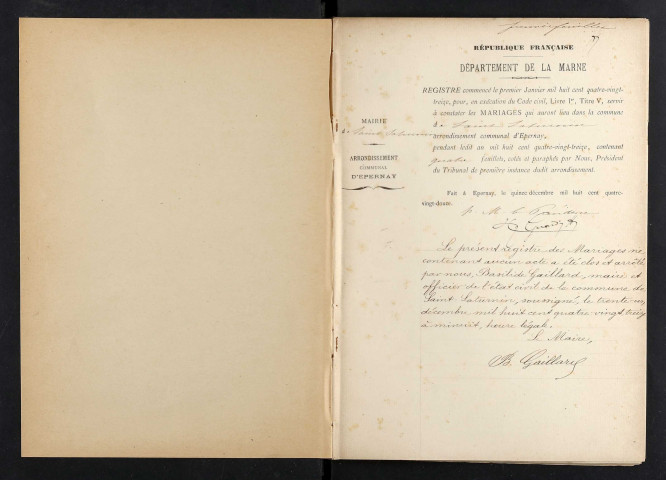 RÉPUBLIQUE FRANÇAISE
DÉPARTEMENT DE LA MARNE
REGISTRE commencé le premier Janvier mil huit cent quatre-vingt-
treize, pour, en exécution du Code civil, Livre Ier, Titre V, servir
à constater les MARIAGES qui auront lieu dans la commune
de Saint Saturnin
arrondissement communal d'Epernay,
pendant ledit an mil huit cent quatre-vingt-treize, contenant
quatre feuillets, cotés et paraphés par Nous, Président
du Tribunal de première instance dudit arrondissement.
MAIRIE
de Saint Saturnin
ARRONDISSEMENT
COMMUNAL
D'EPERNAY
Fait à Epernay, le quinze décembre mil huit cent quatre-
vingt-douze.
Le présent registre des Mariages ne
contenant aucun acte a été clos et arrêté
par nous, Basilide Gaillard, maire et
officier de l'état civil de la commune de
Saint Saturnin, soussigné, le trente-un
décembre mil huit cent quatre-vingt treize
à minuit, heure légale.
Le Maire,
B. Gaillard